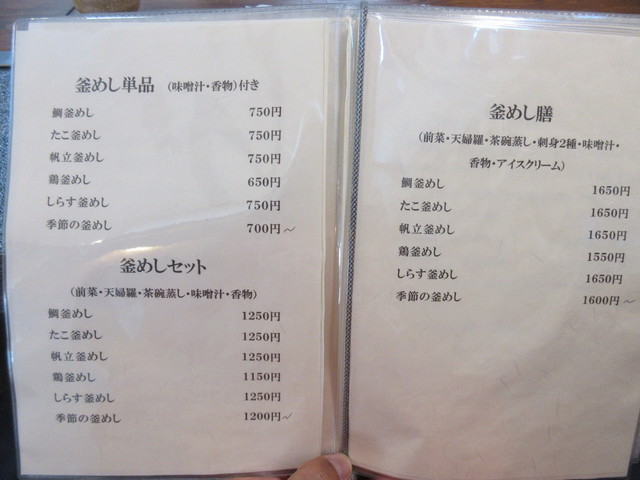 釜めし単品 (味噌汁・香物)付き
鯛釜めし 750円
たこ釜めし 750円
帆立釜めし 750円
鶏釜めし 650円
しらす釜めし 750円
季節の釜めし 700円~
釜めしセット
(前菜・天婦羅・茶碗蒸し・味噌汁・香物)
鯛釜めし 1250円
たこ釜めし 1250円
帆立釜めし 1250円
鶏釜めし 1150円
しらす釜めし 1250円
季節の釜めし 1200円~
釜めし膳
(前菜・天婦羅・茶碗蒸し・刺身2種・味噌汁・
香物・アイスクリーム)
鯛釜めし 1650円
たこ釜めし 1650円
帆立釜めし 1650円
鶏釜めし 1550円
しらす釜めし 1650円
季節の釜めし 1600円~